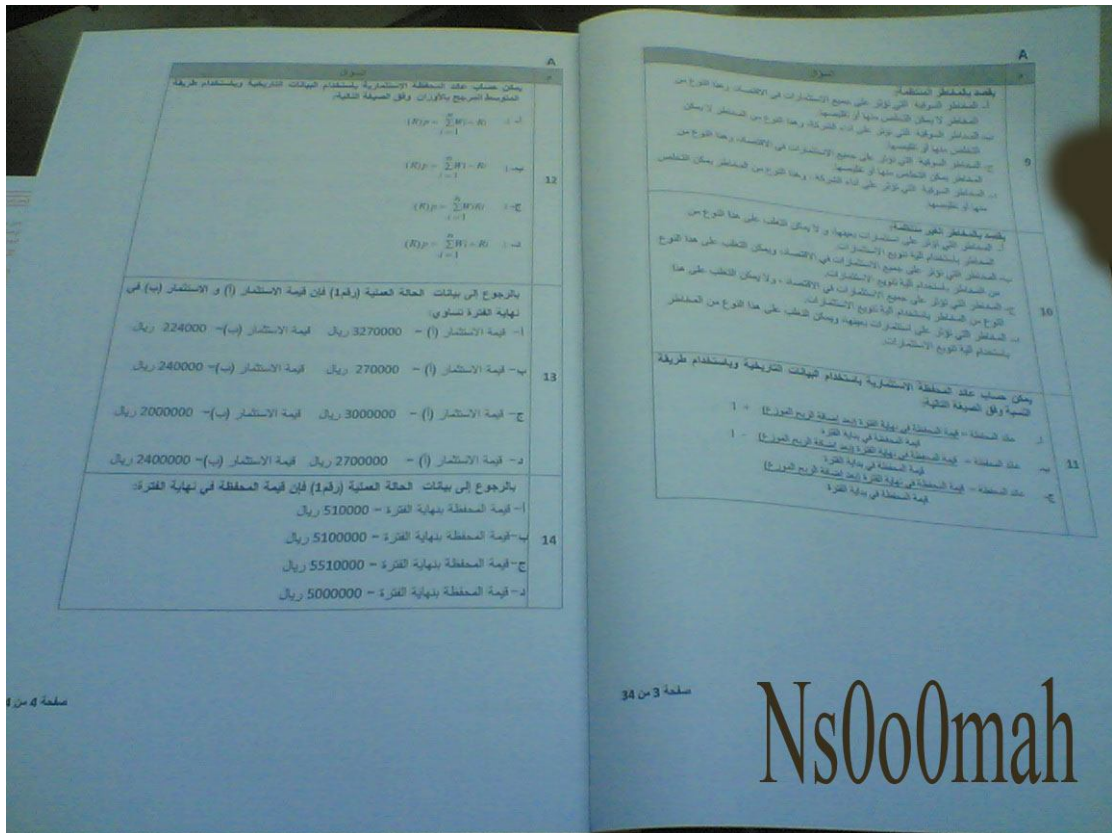 A
م السؤال
9
يقصد بالمخاطر المنتظمة:
أ- المخاطر السوقية التي تؤثر على جميع الاستثمارات في الاقتصاد، وهذا النوع من
المخاطر لا يمكن التخلص منها أو تقليصها.
ب- المخاطر السوقية التي تؤثر على أداء الشركة، وهذا النوع من المخاطر لا يمكن
التخلص منها أو تقليصها.
ج- المخاطر السوقية التي تؤثر على جميع الاستثمارات في الاقتصاد، وهذا النوع من
المخاطر يمكن التخلص منها أو تقليصها.
د- المخاطر السوقية التي تؤثر على أداء الشركة ، وهذا النوع من المخاطر يمكن التخلص
منها أو تقليصها.
10
يقصد بالمخاطر الغير منتظمة:
أ- المخاطر التي تؤثر على استثمارات بعينها، و لا يمكن التغلب على هذا النوع من
المخاطر باستخدام آلية تنويع الاستثمارات.
ب- المخاطر التي تؤثر على جميع الاستثمارات في الاقتصاد، ويمكن التغلب على هذا النوع
من المخاطر باستخدام آلية تنويع الاستثمارات.
ج- المخاطر التي تؤثر على جميع الاستثمارات في الاقتصاد ، ولا يمكن التغلب على هذا
النوع من المخاطر باستخدام آلية تنويع الاستثمارات.
د- المخاطر التي تؤثر على استثمارات بعينها، ويمكن التغلب على هذا النوع من المخاطر
باستخدام آلية تنويع الاستثمارات.
11
يمكن حساب عائد المحفظة الاستثمارية باستخدام البيانات التاريخية وباستخدام طريقة
النسبة وفق الصيغة التالية:
أ. عائد المحفظة = قيمة المحفظة في نهاية الفترة (بعد إضافة الربح الموزع) + 1
قيمة المحفظة في بداية الفترة
ب. عائد المحفظة = قيمة المحفظة في نهاية الفترة (بعد إضافة الربح الموزع) - 1
قيمة المحفظة في بداية الفترة
ج. عائد المحفظة = قيمة المحفظة في نهاية الفترة (بعد إضافة الربح الموزع)
قيمة المحفظة في بداية الفترة
صفحة 3 من 34
A
م السؤال
12
يمكن حساب عائد المحفظة الاستثمارية باستخدام البيانات التاريخية وباستخدام طريقة
المتوسط المرجح بالأوزان وفق الصيغة التالية:
أ-
ب-
ج-
د-
13
بالرجوع إلى بيانات الحالة العملية (رقم1) فإن قيمة الاستثمار (أ) و الاستثمار (ب) في
نهاية الفترة تساوي:
أ- قيمة الاستثمار (أ) = 3270000 ريال قيمة الاستثمار (ب)= 224000 ريال
ب- قيمة الاستثمار (أ) = 270000 ريال قيمة الاستثمار (ب)= 240000 ريال
ج- قيمة الاستثمار (أ) = 3000000 ريال قيمة الاستثمار (ب)= 2000000 ريال
د- قيمة الاستثمار (أ) = 2700000 ريال قيمة الاستثمار (ب)= 2400000 ريال
14
بالرجوع إلى بيانات الحالة العملية (رقم1) فإن قيمة المحفظة في نهاية الفترة:
أ- قيمة المحفظة بنهاية الفترة = 510000 ريال
ب-قيمة المحفظة بنهاية الفترة = 5100000 ريال
ج- قيمة المحفظة بنهاية الفترة = 5510000 ريال
د- قيمة المحفظة بنهاية الفترة = 5000000 ريال
صفحة 4 من
Ns0o0mah